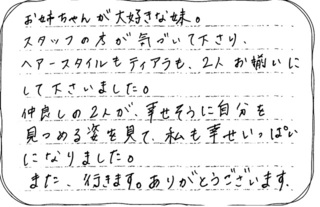 お姉ちゃんが大好きな妹。
スタッフの方が気づいて下さり、
ヘアースタイルもティアラも、2人お揃いに
して下さいました。
仲良しの2人が、幸せそうに自分を
見つめる姿を見て、私も幸せいっぱい
になりました。
また、行きます。ありがとうございます.